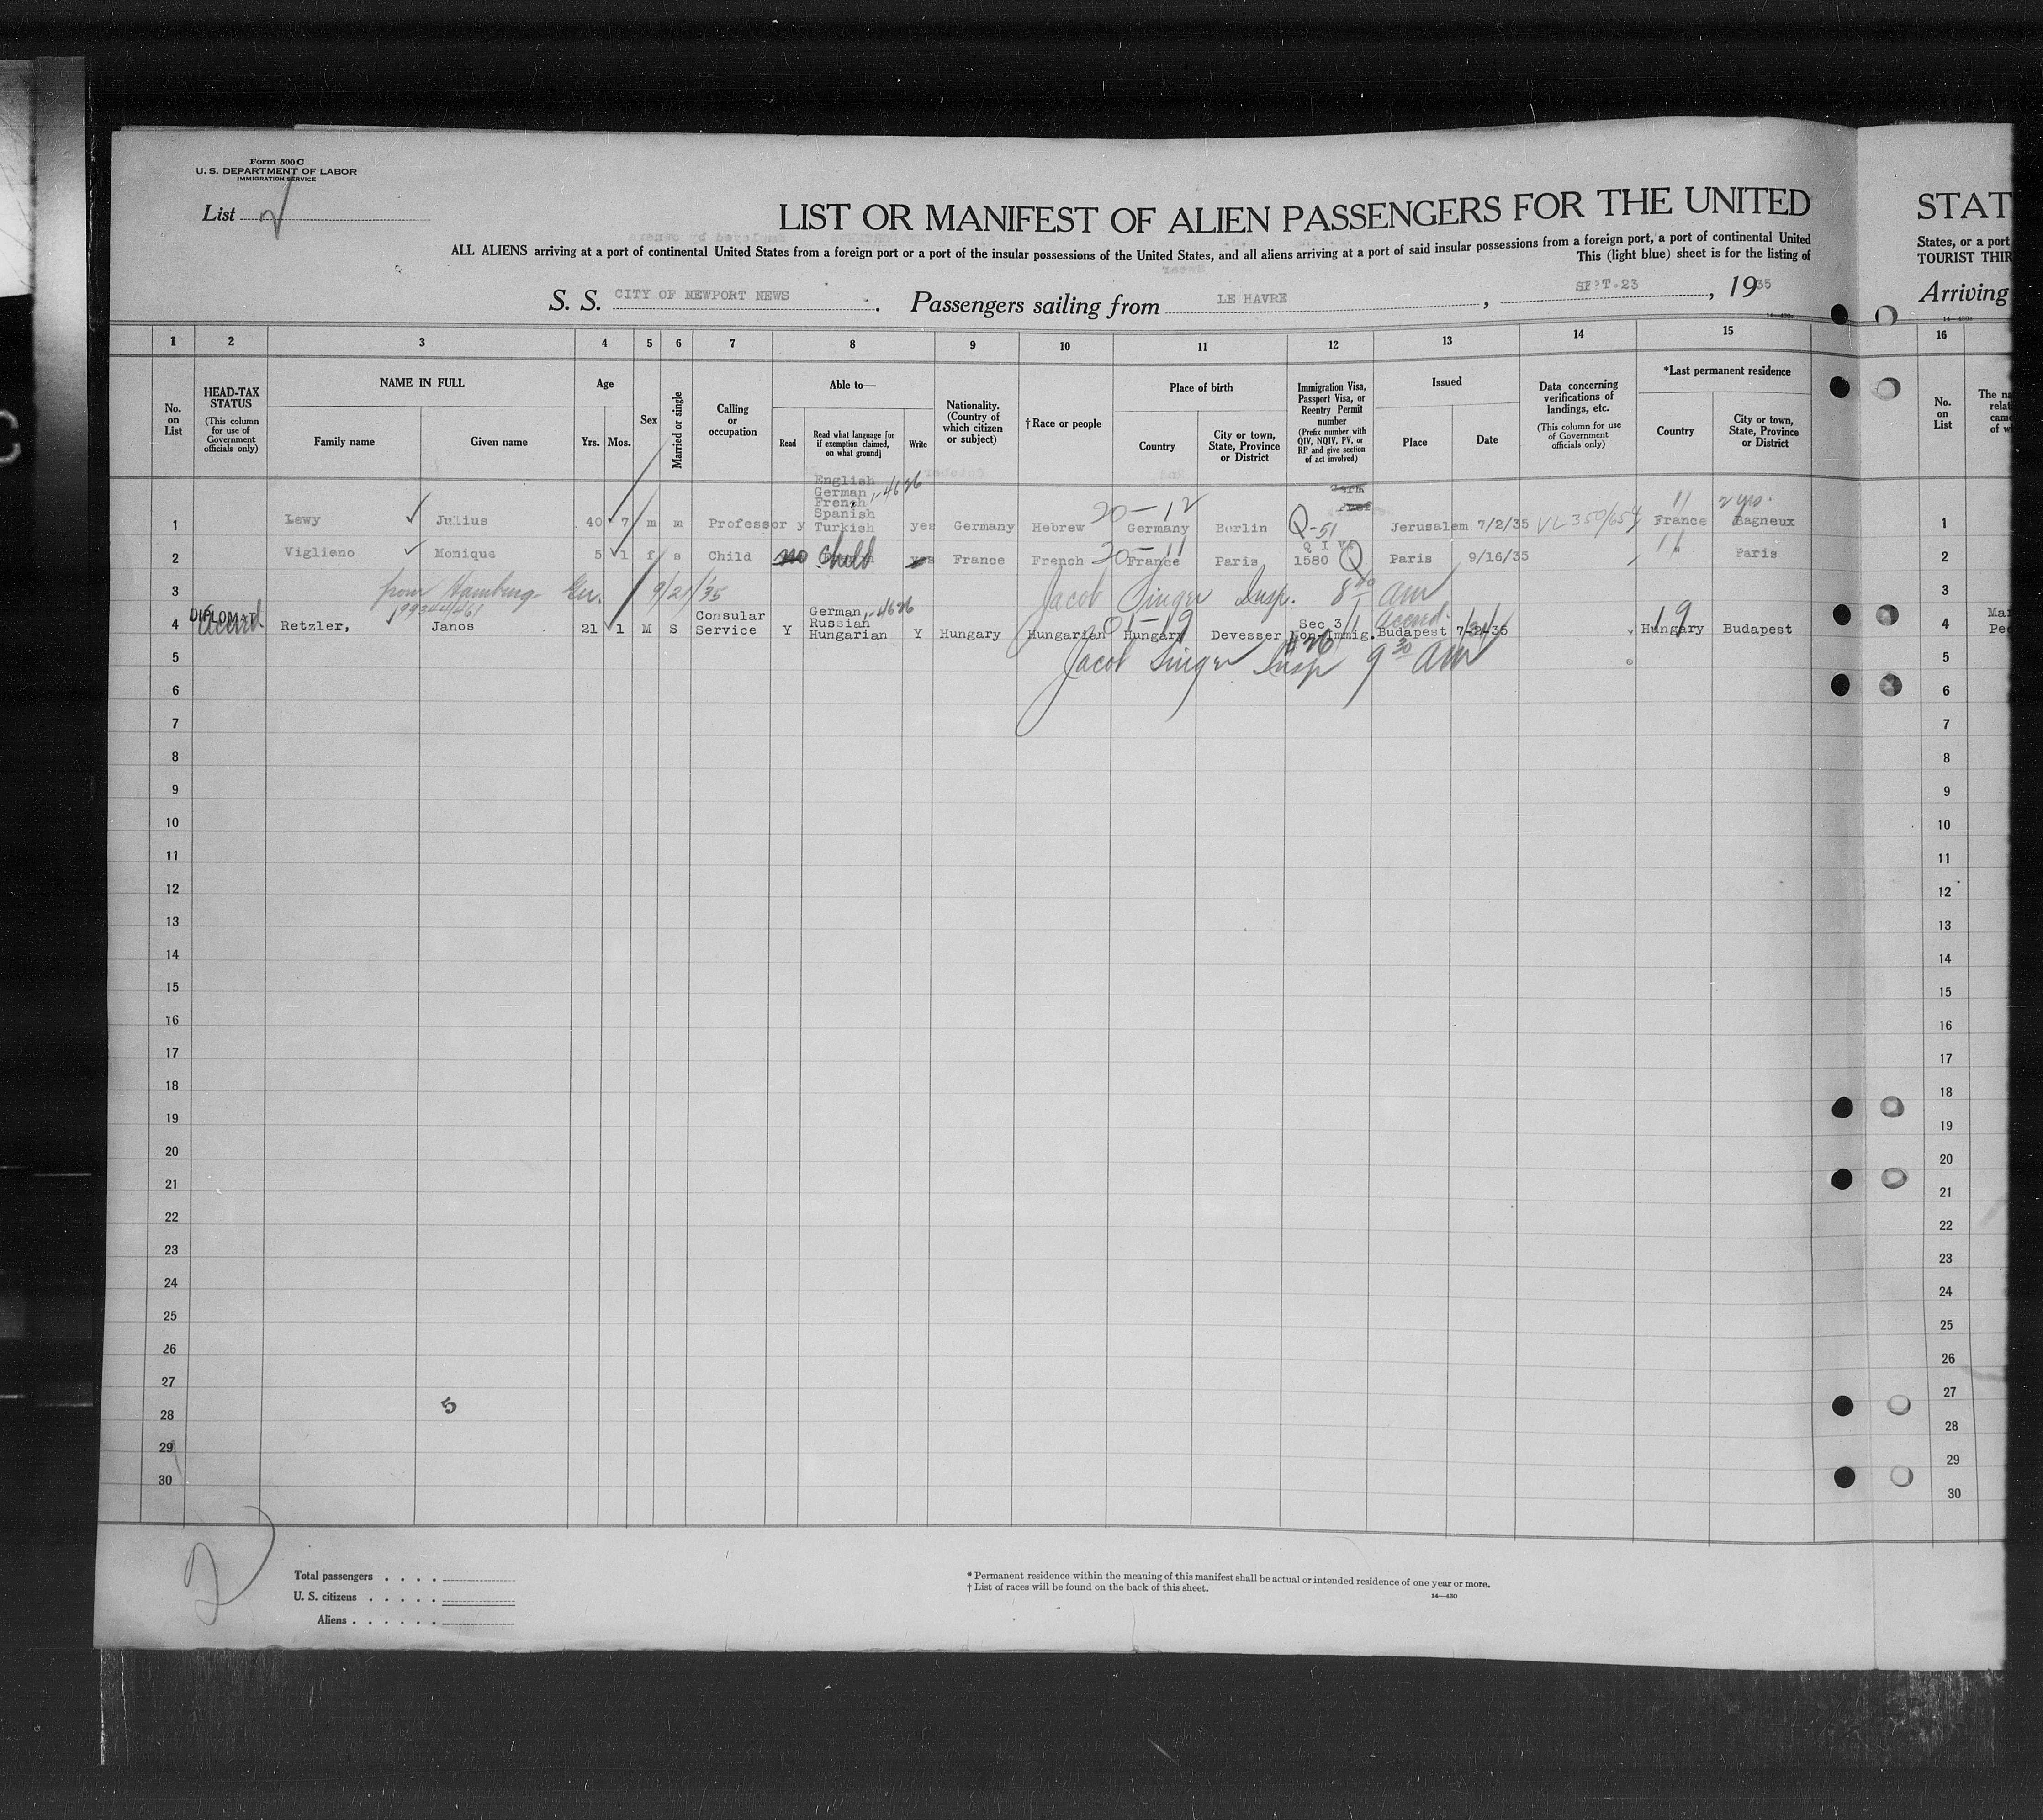 Form 500 C
U. S. DEPARTMENT OF LABOR
IMMIGRATION SERVICE
List 2
LIST OR MANIFEST OF ALIEN PASSENGERS FOR THE UNITED
STAT
ALL ALIENS arriving at a port of continental United States from a foreign port or a port of the insular possessions of the United States, and all aliens arriving at a port of said insular possessions from a foreign port, a port of continental United
States, or a port
This (light blue) sheet is for the listing of
TOURIST THIR
S. S. CITY OF NEWPORT NEWS. Passengers sailing from LE HAVRE, SEPT.23, 1935
Arriving
1 2 3 4 5 6 7 8 9 10 11 12 13 14 15 16
No. on List
HEAD-TAX STATUS (This column for use of Government officials only)
NAME IN FULL
Family name
Given name
Age
Yrs. Mos.
Sex
Married or single
Calling or occupation
Able to—
Read
Read what language [or if exemption claimed, on what ground]
Write
Nationality. (Country of which citizen or subject)
† Race or people
Place of birth
Country
City or town, State, Province or District
Immigration Visa, Passport Visa, or Reentry Permit number (Prefix number with QIV, NQIV, PV, or RP and give section of act involved)
Issued
Place
Date
Data concerning verifications of landings, etc. (This column for use of Government officials only)
*Last permanent residence
Country
City or town, State, Province or District
No. on List
The na
relat
came
of w
English
German
French,
Spanish
1 Lewy Julius 40 7 m m Professor y Turkish yes Germany Hebrew 20-12 Germany Berlin Q-51 Jerusalem 7/2/35 VL 350/654 11 France 2 yrs. Bagneux 1
2 Viglieno Monique 5 1 f s Child no Child yes France French 20-11 France Paris Q I V 1580 Q Paris 9/16/35 11 Paris 2
3 from Hamburg Ger. 9/21/35 Jacob Singer Insp. 8 00 am 3
DIPLOMAT Accrd
4 Retzler, Janos 21 1 M S Consular Service Y German, Russian Hungarian Y Hungary Hungarian 01-19 Hungary Devesser Sec 3/1 Non-Immig. Accrd. Budapest 19 Hungary Budapest 4
Mar
Pec
5 Jacob Singer Insp 9 30 am 5
6 6
7 7
8 8
9 9
10 10
11 11
12 12
13 13
14 14
15 15
16 16
17 17
18 18
19 19
20 20
21 21
22 22
23 23
24 24
25 25
26 26
27 27
5
28 28
29 29
30 30
2
Total passengers . . . .
U. S. citizens . . . . .
Aliens . . . . . .
* Permanent residence within the meaning of this manifest shall be actual or intended residence of one year or more.
† List of races will be found on the back of this sheet.
14—430